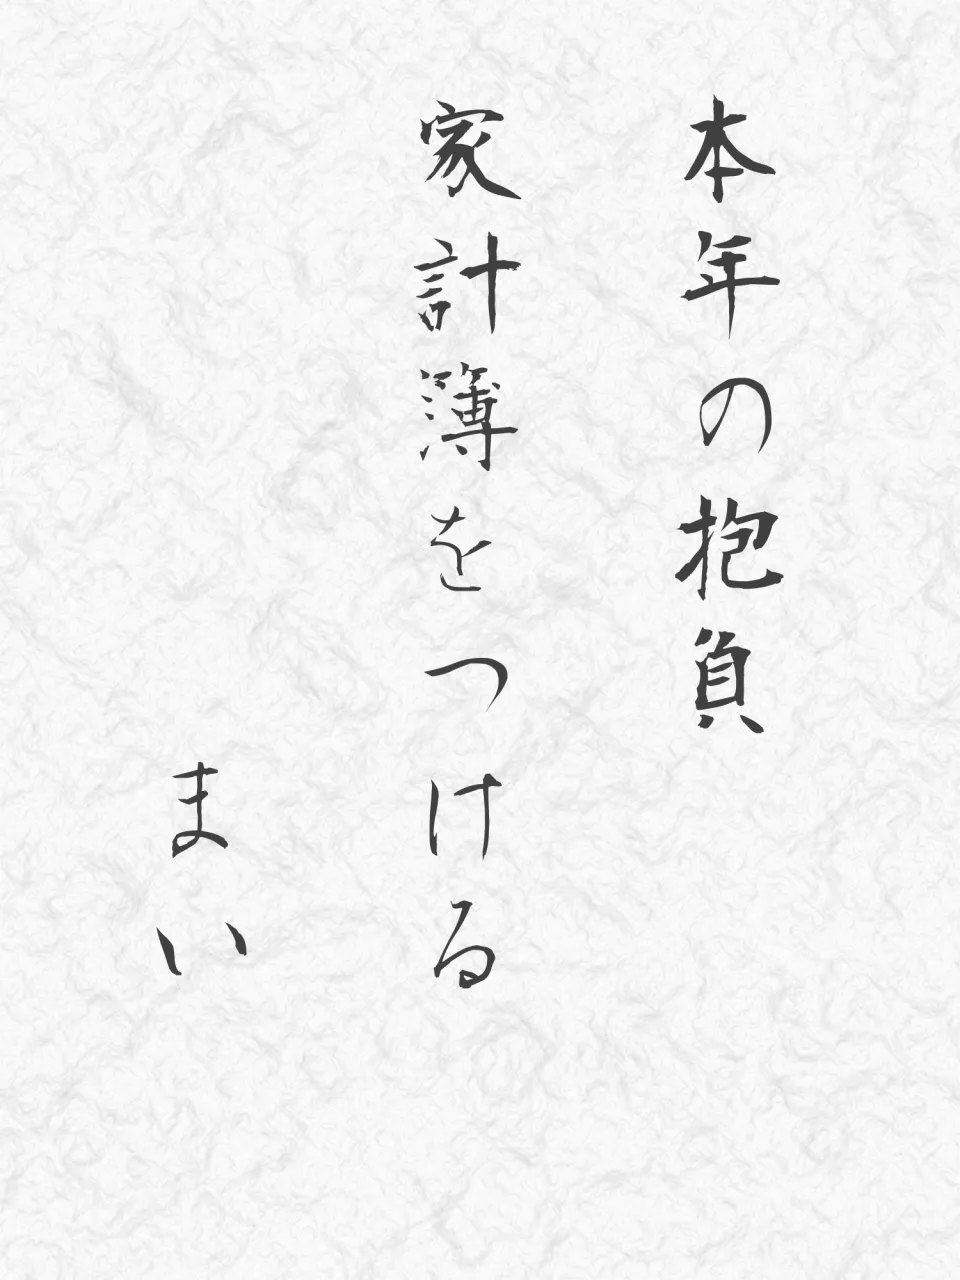 本年の抱負
家計簿をつける
まい